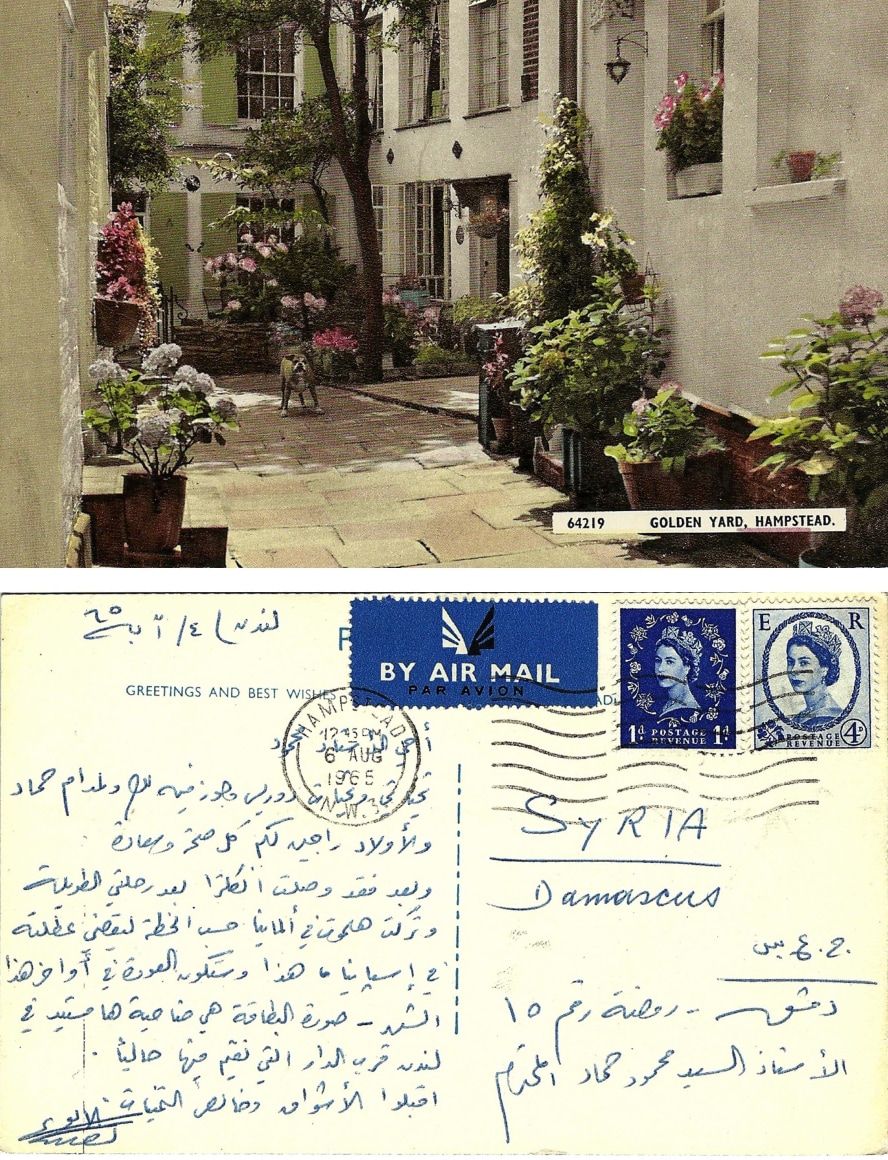 64219 GOLDEN YARD, HAMPSTEAD.
لندن / ٤ آب ٦٥
BY AIR MAIL
PAR AVION
GREETINGS AND BEST WISHES
HAMPSTEAD
12 45 PM
6 AUG
1965
N.W.3
E R
1d POSTAGE REVENUE 1d
POSTAGE REVENUE 4d
أخي
تحياتي دوريس وجوزفينه لك ولمدام حماد
والأولاد راجين لكم كل صحة وسعادة
وبعد فقد وصلت انكلترا بعد رحلتي الطويلة
وتركت في ألمانيا حسب الخطة ليقضي عطلته
في إسبانيا هذا وستكون العودة في أواخر هذا
الشهر – صورة البطاقة هي ضاحية هامستيد في
لندن قرب الدار التي نقيم فيها حالياً .
اقبلوا الأشواق وخالص التحيات
SYRIA
Damascus
ج.ع.س
دمشق – روضة رقم ١٥
الأستاذ السيد محمود حماد المحترم